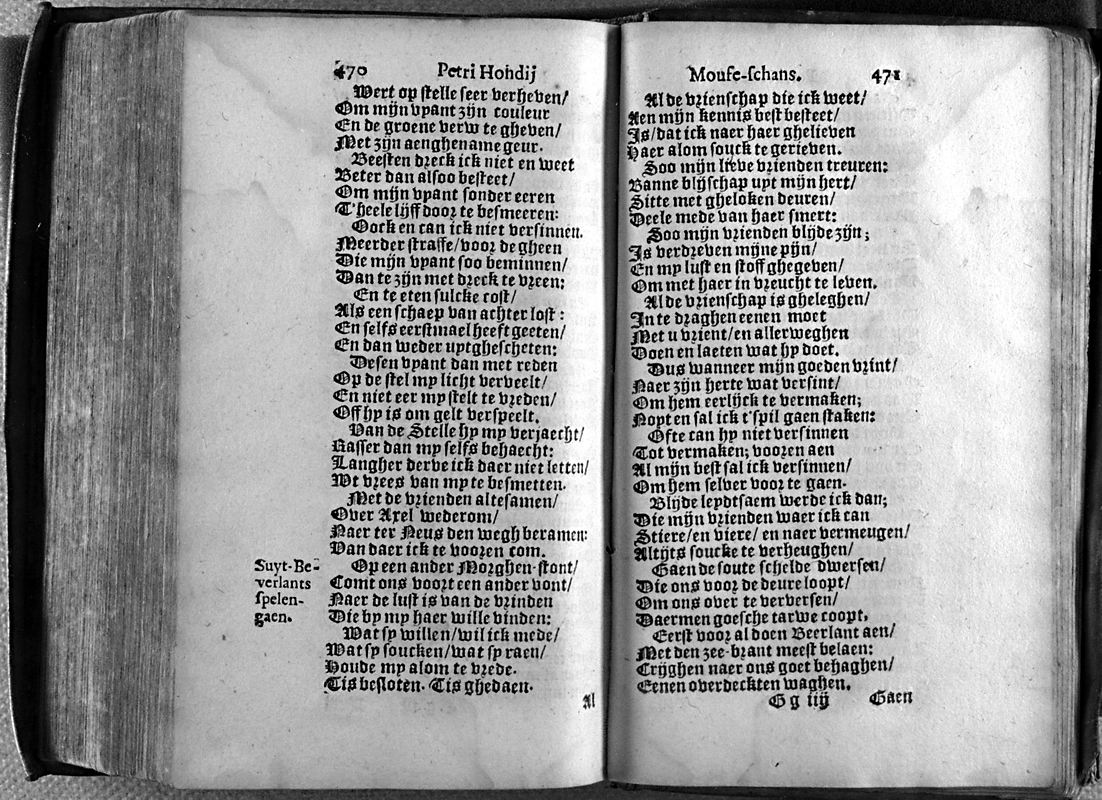 470 Petri Hondij
Wert op stelle seer verheven/
Om mijn vyant zijn couleur
En de groene verw te gheven/
Met zijn aenghename geur.
Beesten dreck ick niet en weet
Beter dan alsoo besteet/
Om mijn vyant sonder eeren
T'heele lijff door te besmeeren:
Oock en can ick niet versinnen.
Meerder straffe/voor de gheen
Die mijn vyant soo beminnen/
Dan te zijn met dreck te vreen:
En te eten sulcke cost/
Als een schaep van achter lost:
En selfs eerstmael heeft geeten/
En dan weder uytghescheten:
Desen vyant dan met reden
Op de stel my licht verveelt/
En niet eer my stelt te vreden/
Off hy is om gelt verspeelt.
Van de Stelle hy my verjaecht/
Rasser dan my selfs behaecht:
Langher derve ick daer niet letten/
Wt vrees van my te besmetten.
Met de vrienden altesamen/
Over Axel wederom/
Naer ter Neus den wegh beramen:
Van daer ick te vooren com.
Suyt-Be-
verlants
spelen-
gaen.
Op een ander Morghen-stont/
Comt ons voort een ander vont/
Naer de lust is van de vrinden
Die by my haer wille vinden:
Wat sy willen/wil ick mede/
Wat sy soucken/wat sy raen/
Houde my alom te vrede.
Tis besloten. Tis ghedaen.
Al
Mouse-schans. 471
Al de vrienschap die ick weet/
Aen mijn kennis best besteet/
Is/dat ick naer haer ghelieven
Haer alom souck te gerieven.
Soo mijn lieve vrienden treuren:
Banne blijschap uyt mijn hert/
Sitte met gheloken deuren/
Deele mede van haer smert:
Soo mijn vrienden blijde zijn;
Is verdreven mijne pijn/
En my lust en stoff ghegeven/
Om met haer in vreucht te leven.
Al de vrienschap is gheleghen/
In te draghen eenen moet
Met u vrient/en allerweghen
Doen en laeten wat hy doet.
Dus wanneer mijn goeden vrint/
Naer zijn herte wat versint/
Om hem eerlijck te vermaken;
Noyt en sal ick t'spil gaen staken:
Ofte can hy niet versinnen
Tot vermaken; vooren aen
Al mijn best sal ick versinnen/
Om hem selver voor te gaen.
Blijde leydtsaem werde ick dan;
Die mijn vrienden waer ick can
Stiere/en viere/ en naer vermeugen/
Altijts soucke te verheughen/
Gaen de soute schelde dwersen/
Die ons voor de deure loopt/
Om ons over te verversen/
Daermen goesche tarwe coopt.
Eerst voor al doen Beerlant aen/
Met den zee-brant meest belaen:
Crijghen naer ons goet behaghen/
Eenen overdeckten waghen.
G g iij Gaen